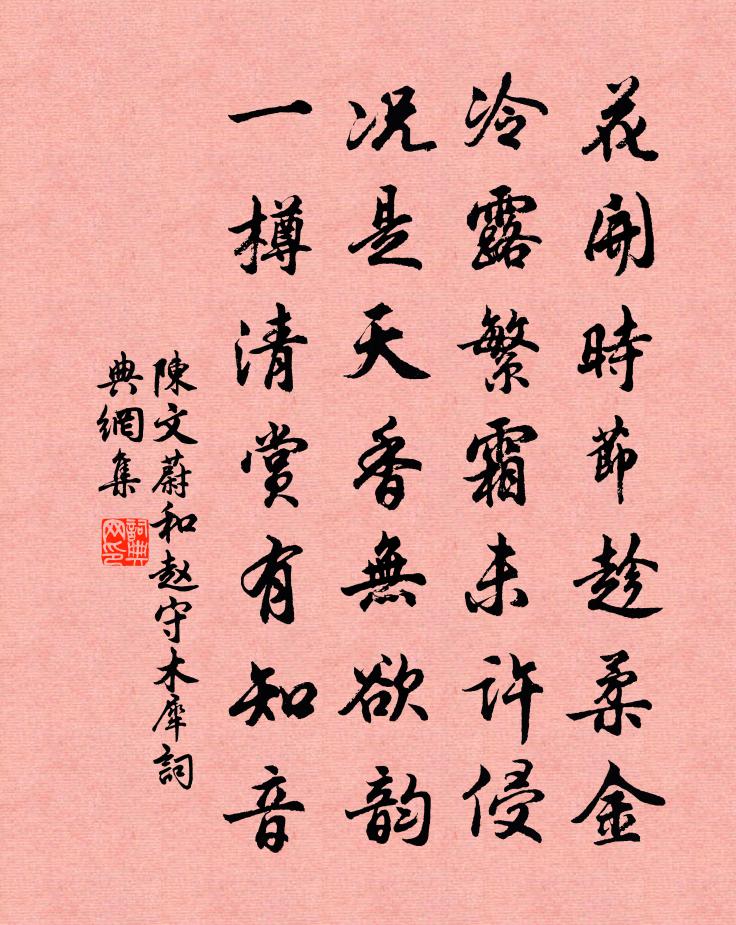 花開時節趁柔金
冷露繁霜未許侵
况是天香無欲韵
一樽清赏有知音
陳文蔚和赵守木犀詞
典網集
詞典网印